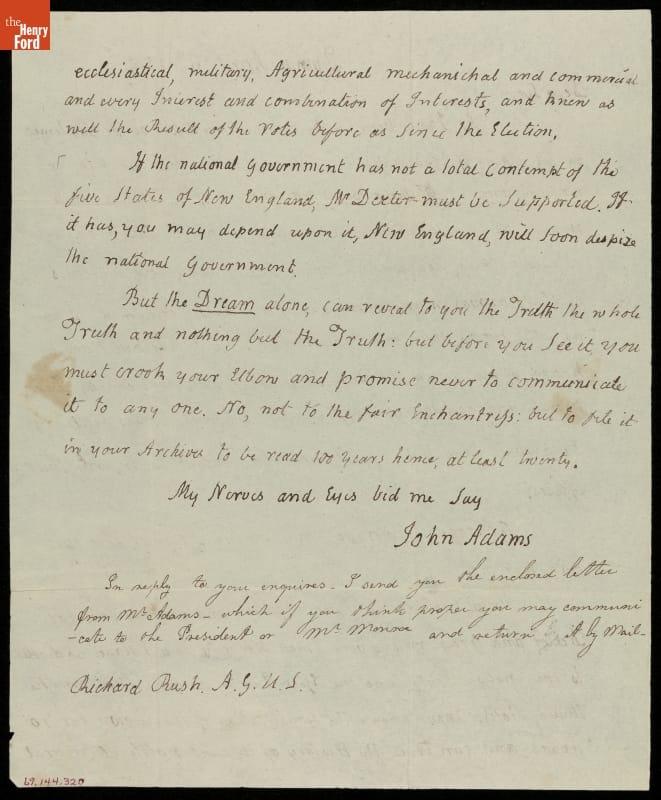 the
Henry
Ford
ecclesiastical, military, Agricultural mechanichal and commercial
and every Interest and combination of Interests, and knew as
well the Result of the Votes before as since the Election.
If the national Government has not a total contempt of the
five States of New England, Mr Dexter must be supported. If
it has, you may depend upon it, New England, will soon despize
the national Government.
But the Dream alone, can reveal to you the Truth the whole
Truth and nothing but the Truth: but before you See it, you
must crook your Elbow and promise never to communicate
it to any one. No, not to the fair Enchantress: but to file it
in your Archives to be read 100 years hence, at least twenty.
My Nerves and Eyes bid me Say
John Adams
In reply to your enquires - I send you the enclosed letter
from Mr Adams - which if you think proper you may communi
-cate to the President or Mr Monroe and return it by Mail -
Richard Rush. A.G.U.S.
69.144.320